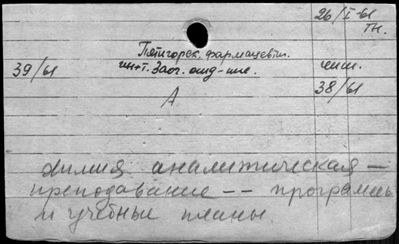 26/I-61
тн.
Пятигорск. фармацевтич.
ин-т. Заоч. отд-ние.
39/61
38/61
А
химия аналитическая —
преподавание -- программы
и учебные планы.